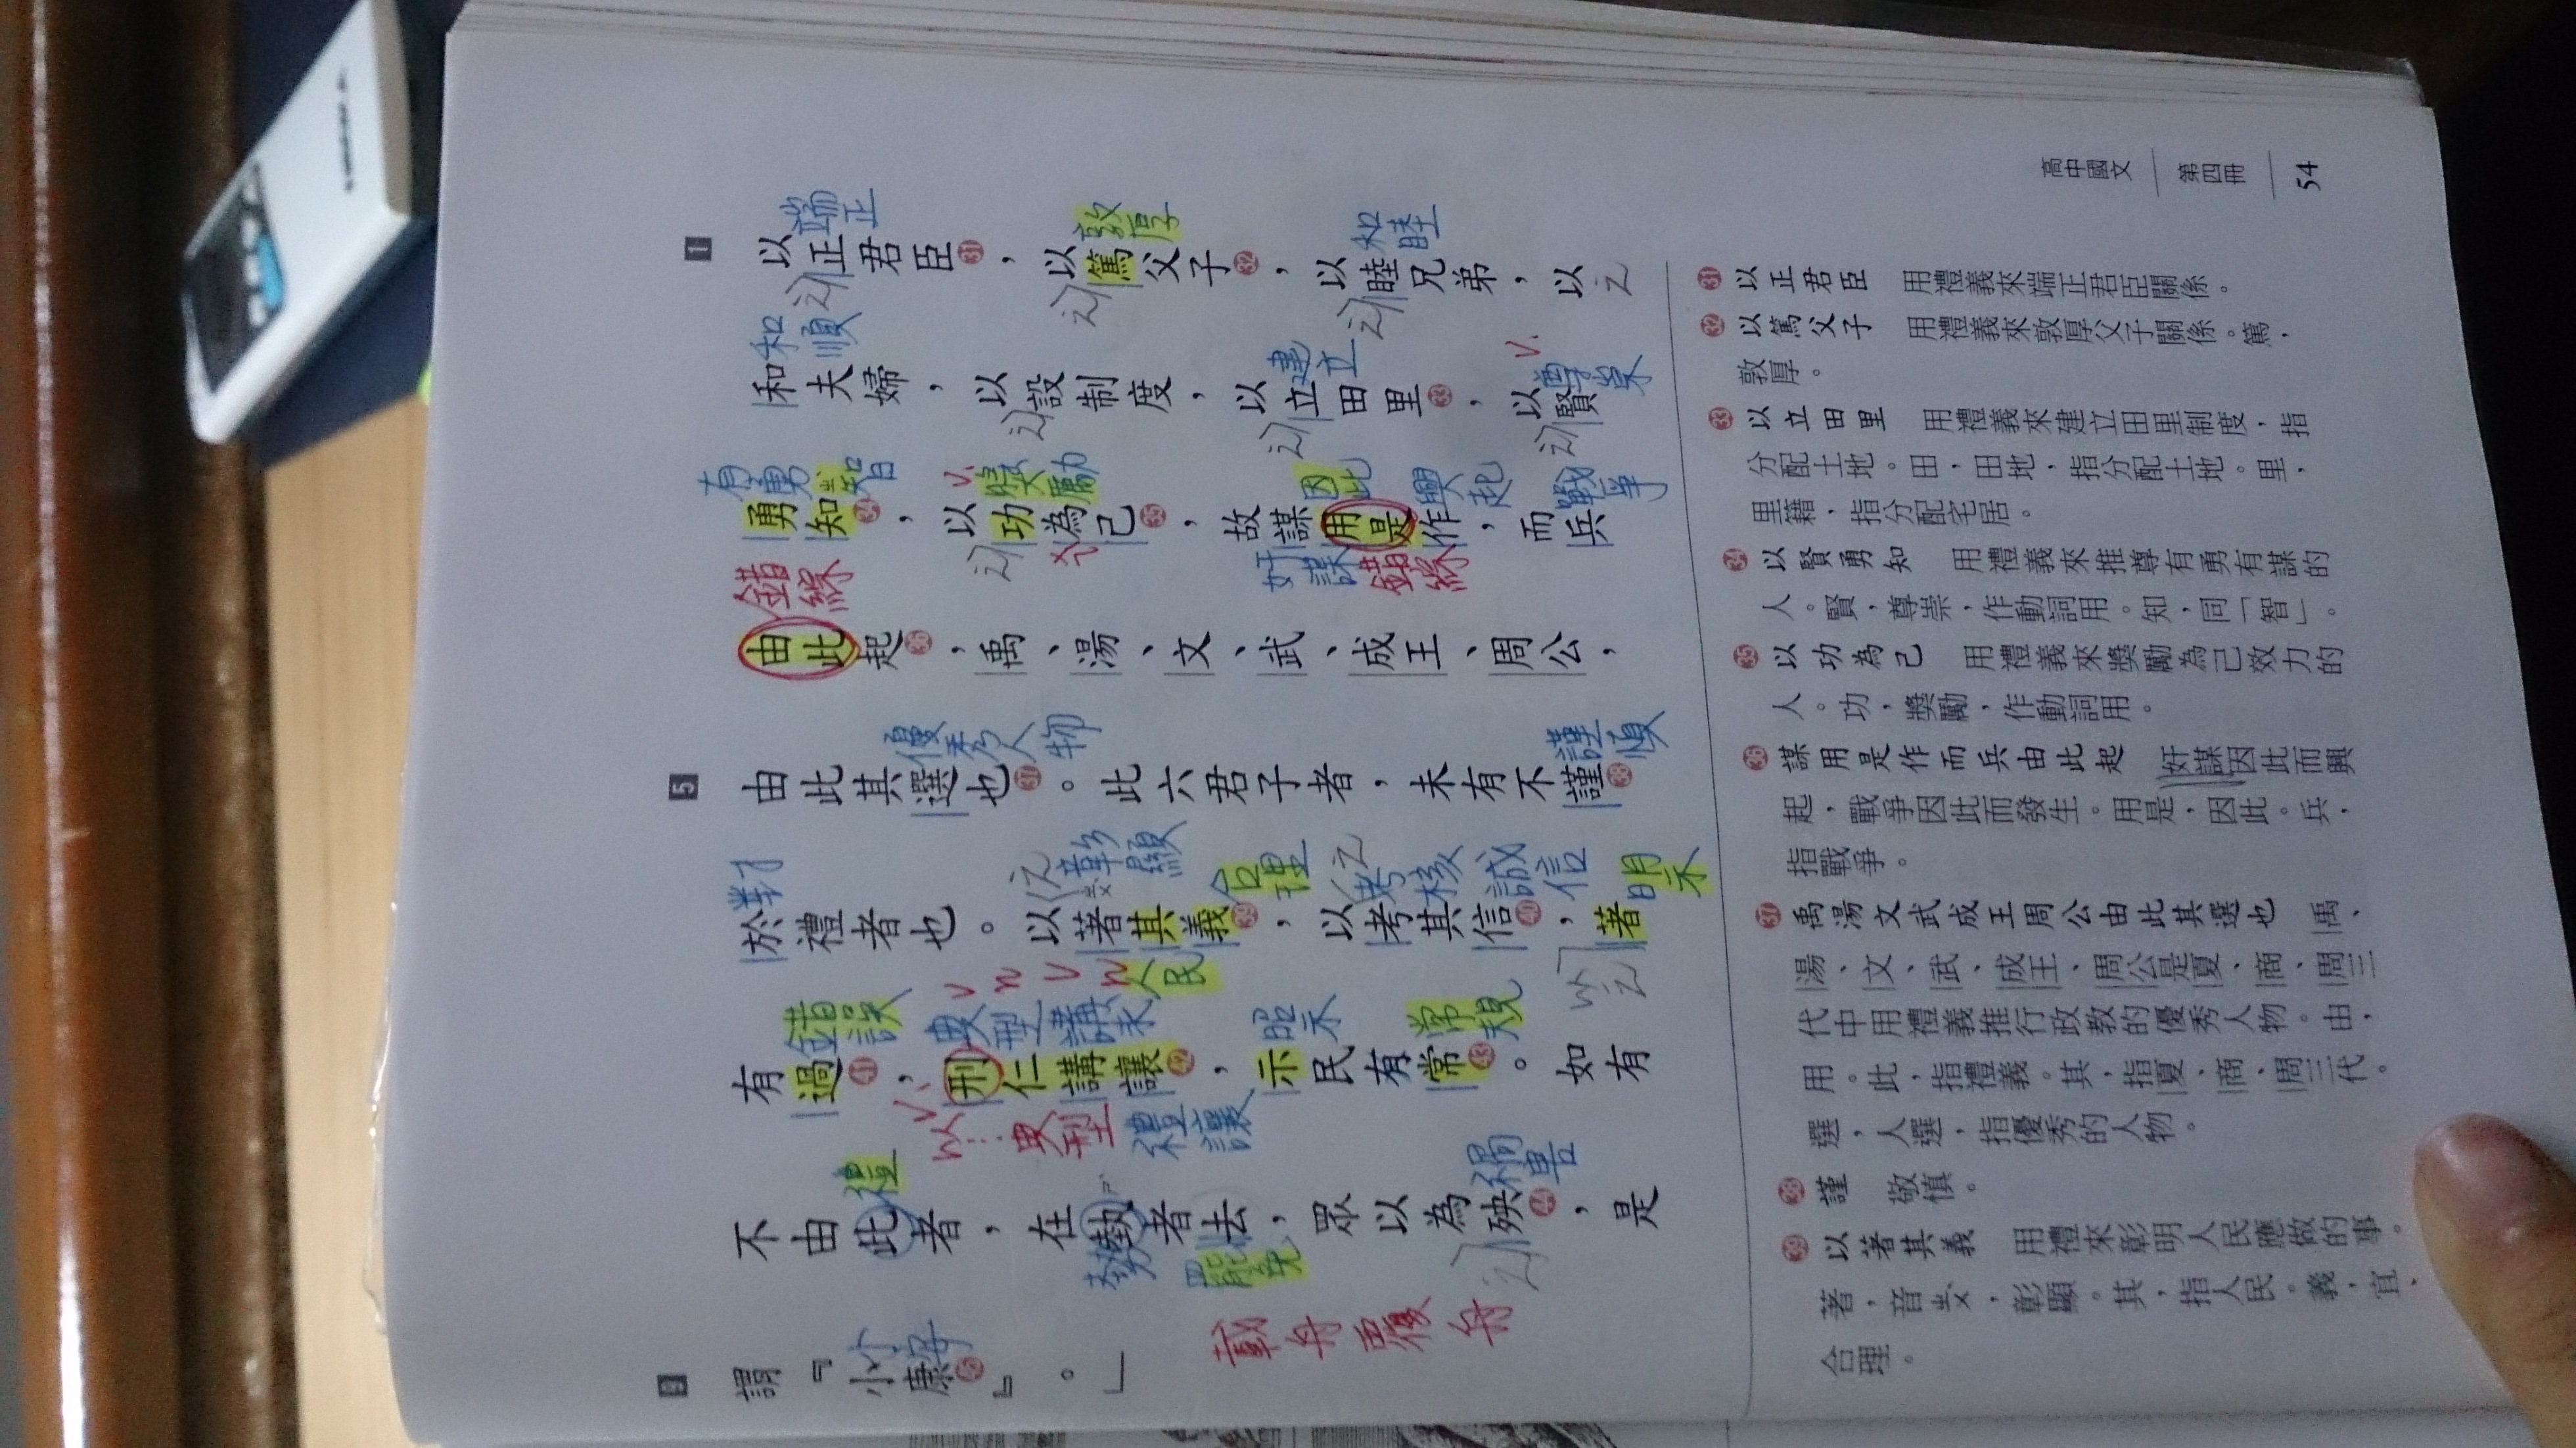 1
以正君臣㉛，以篤父子㉜，以睦兄弟，以
和夫婦，以設制度，以立田里㉝，以賢
勇知㉞，以功為己㉟，故謀用是作，而兵
由此起㊱，禹、湯、文、武、成王、周公，
5
由此其選也㊲。此六君子者，未有不謹㊳
於禮者也。以著其義㊴，以考其信㊵，著
有過㊶，刑仁講讓㊷，示民有常㊸。如有
不由此者，在埶者去，眾以為殃㊹，是
謂『小康㊺』。」
端正
敦厚
和睦
和順
建立
V.
尊崇
有勇
智
V.
獎勵
因此
興起
戰爭
錯綜
奸謀
錯綜
優秀人物
謹慎
對
彰顯
合理
考核
誠信
明示
錯誤
典型
講求
V n V n
人民
昭示
常規
以…典型
禮讓
禮
禍害
勢
罷免
載舟覆舟
㉛以正君臣　用禮義來端正君臣關係。
㉜以篤父子　用禮義來敦厚父子關係。篤，
敦厚。
㉝以立田里　用禮義來建立田里制度，指
分配土地。田，田地，指分配土地。里，
里籍，指分配宅居。
㉞以賢勇知　用禮義來推尊有勇有謀的
人。賢，尊崇，作動詞用。知，同「智」。
㉟以功為己　用禮義來獎勵為己效力的
人。功，獎勵，作動詞用。
㊱謀用是作而兵由此起　奸謀因此而興
起，戰爭因此而發生。用是，因此。兵，
指戰爭。
㊲禹湯文武成王周公由此其選也　禹、
湯、文、武、成王、周公是夏、商、周三
代中用禮義推行政教的優秀人物。由，
用。此，指禮義。其，指夏、商、周三代。
選，人選，指優秀的人物。
㊳謹　敬慎。
㊴以著其義　用禮來彰明人民應做的事。
著，音ㄓㄨˋ，彰顯。其，指人民。義，宜、
合理。
高中國文
第四冊
54